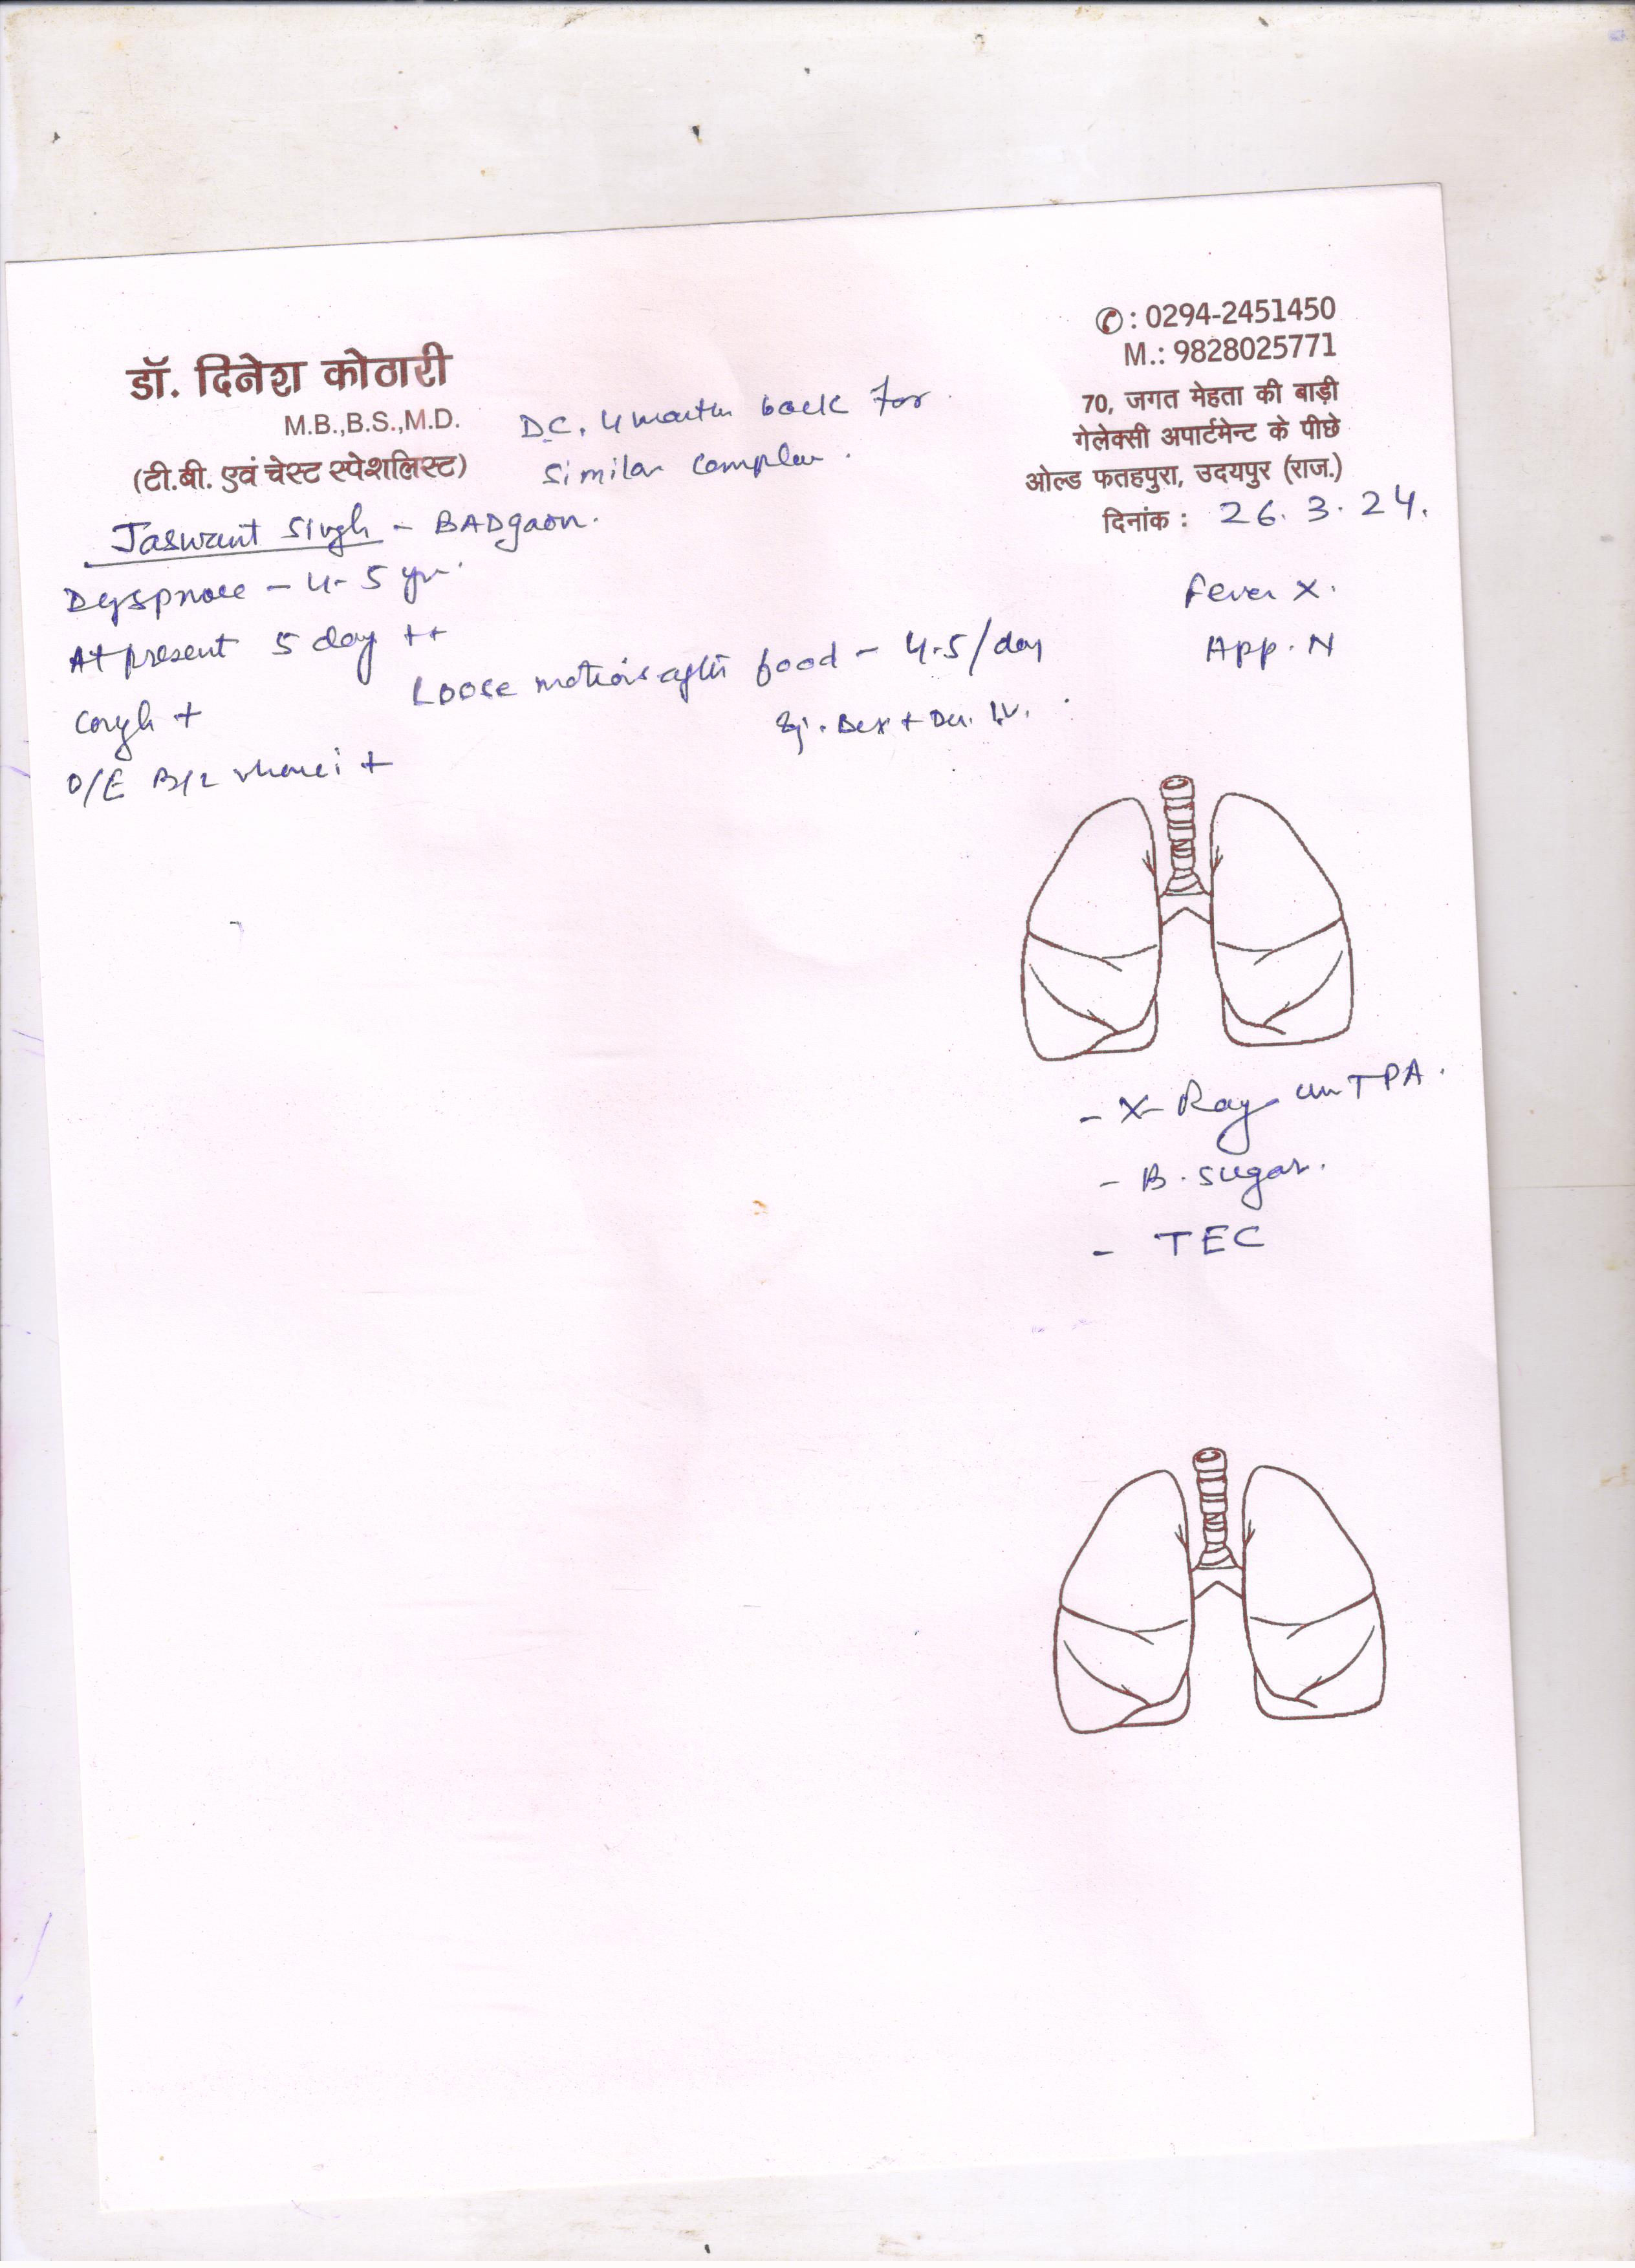 डॉ. दिनेश कोठारी
M.B.,B.S.,M.D.
(टी.बी. एवं चेस्ट स्पेशलिस्ट)
✆ : 0294-2451450
M.: 9828025771
70, जगत मेहता की बाड़ी
गेलेक्सी अपार्टमेन्ट के पीछे
ओल्ड फतहपुरा, उदयपुर (राज.)
दिनांक : 26.3.24.
D.C. 4 month back for
similar
Jaswant Singh - BADgaon.
Dyspnoee - 4-5 yr.
At present 5 day ++
Cough +
O/E B/L rhonci +
Loose motions after food - 4-5/day
Fever X.
App. N
- X-Ray TPA.
- B. sugar.
- TEC